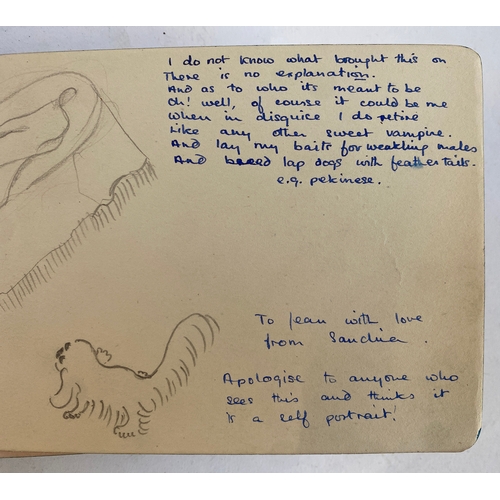 I do not know what brought this on
There is no explanation.
And as to who its meant to be
Oh! well, of course it could be me
When in disguise I do retire
Like any other sweet vampire.
And lay my baits for weakling males
And breed lap dogs with feather tails.
e.g. pekinese.
To Jean with love
from
Apologise to anyone who
sees this and thinks it
is a self portrait!